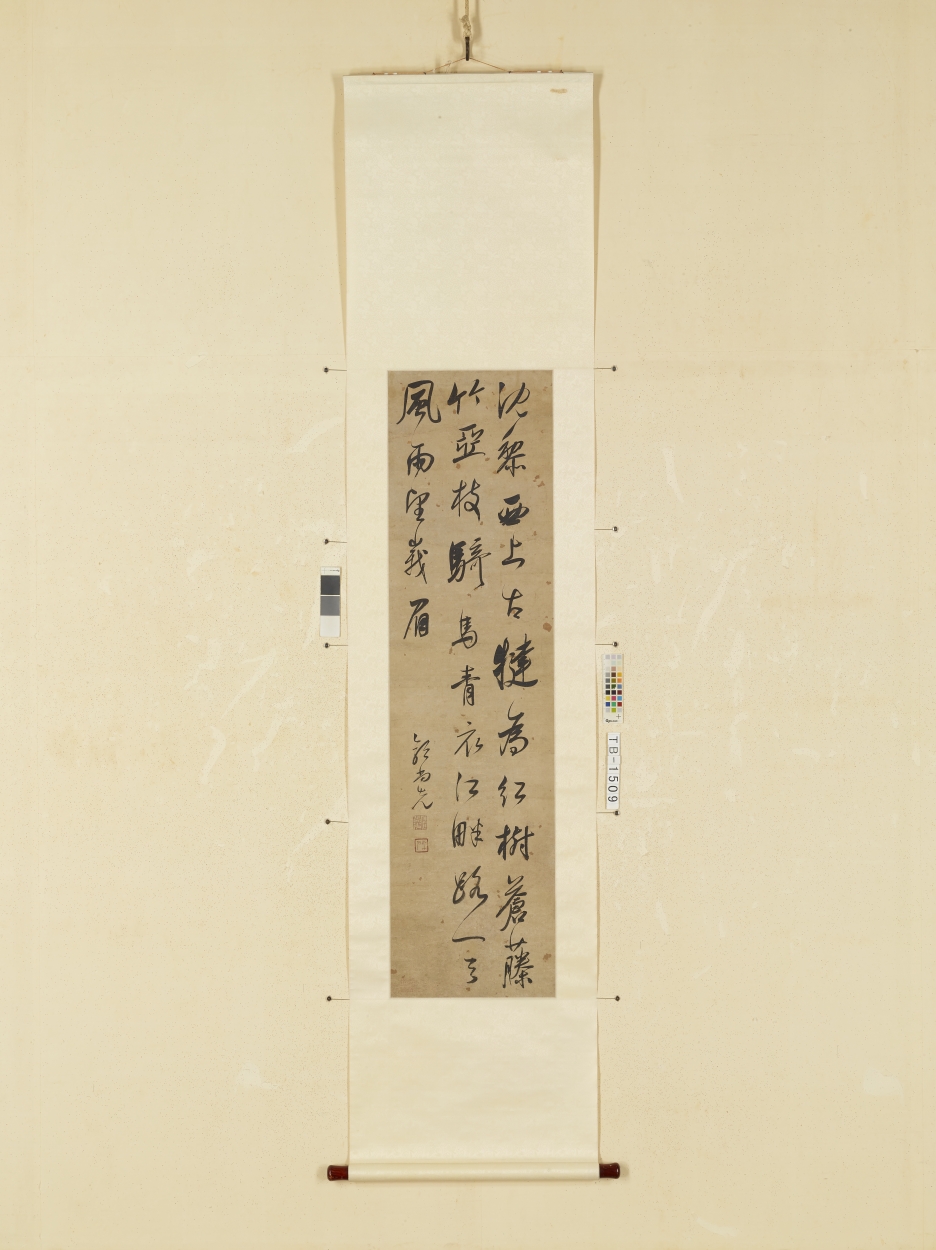 沈黎西上古犍為紅樹蒼藤
竹亞枝騎馬青衣江畔路一天
風雨望峩眉
郭尚先
TB-1509